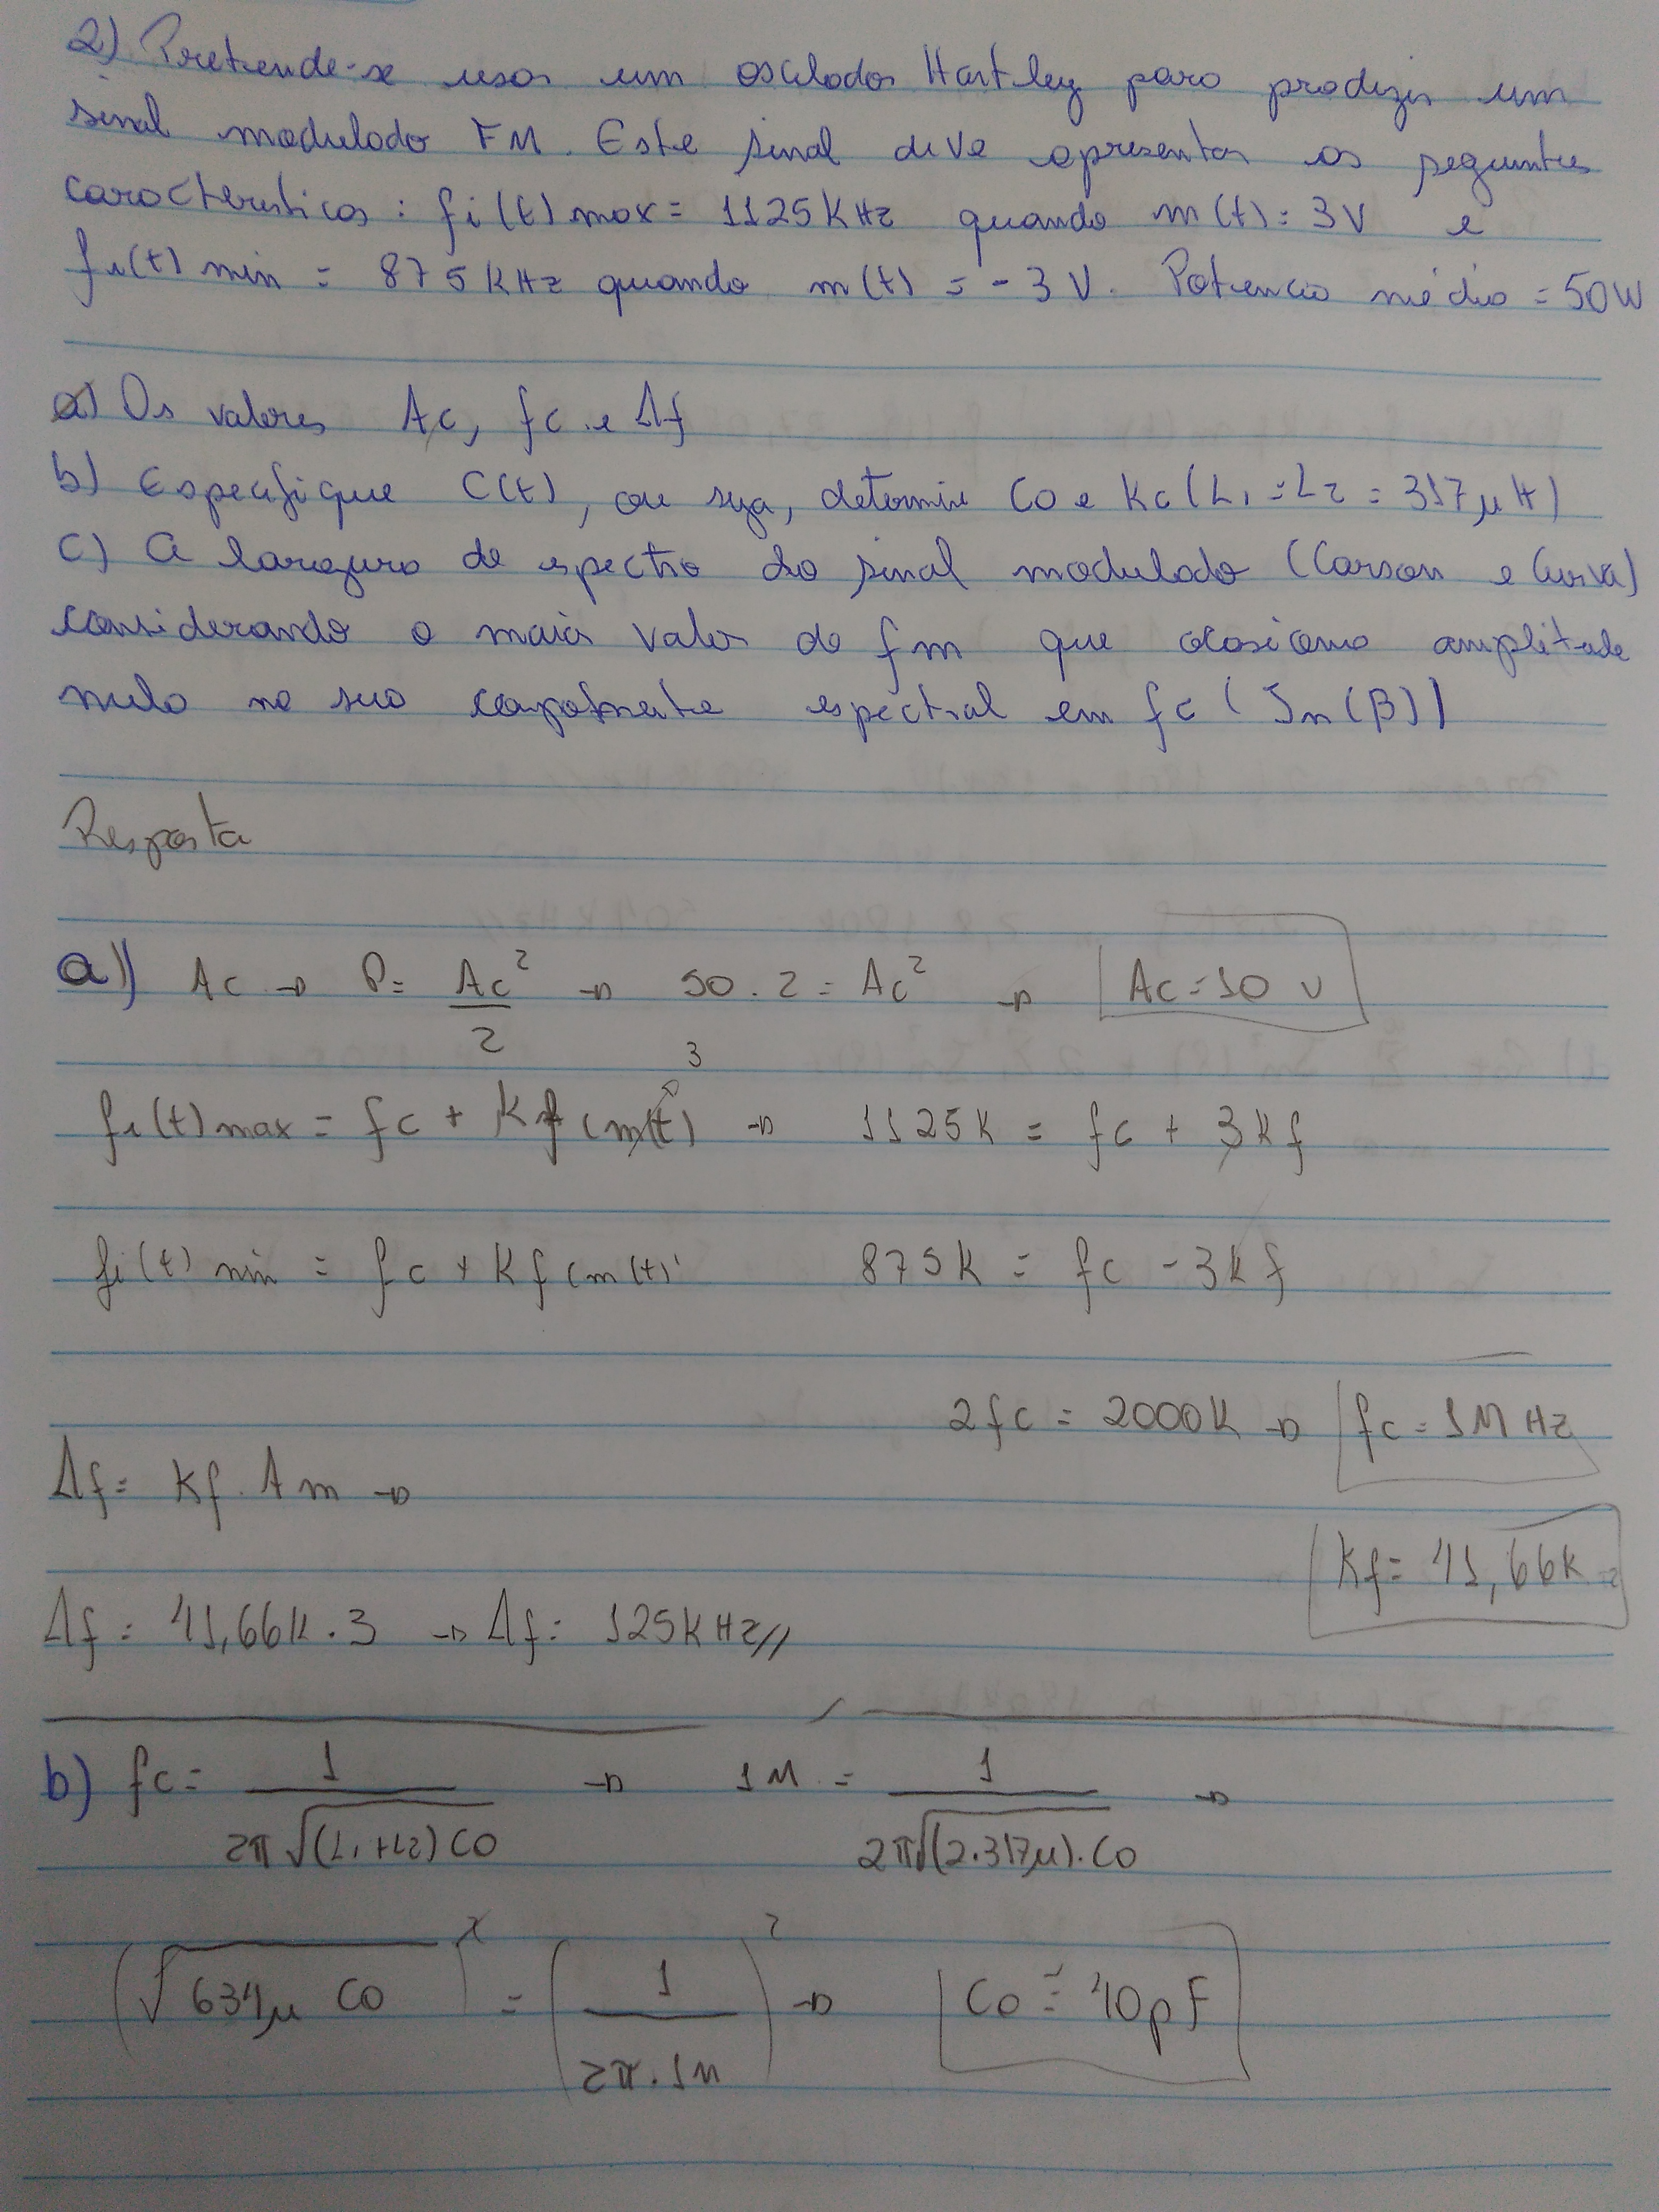 2) Pretende-se usar um oscilador Hartley para produzir um
sinal modulado FM. Este sinal deve apresentar as seguintes
caracteristicas : fi(t) max = 1125KHz quando m(t) = 3V e
fi(t) min = 875KHz quando m(t) = -3V. Potencia média = 50W
a) Os valores Ac, fc e Δf
b) Especifique C(t), ou seja, determine Co e Kc (L1 = L2 = 317μH)
c) A largura de espectro do sinal modulado (Carson e Curva)
considerando o maior valor de fm que ocasiona amplitude
nula na sua componente espectral em fc (Jn(β))
Resposta
a) Ac → P = Ac²/2 → 50 . 2 = Ac² → Ac = 10 v
3
fi(t) max = fc + Kf (m(t)) → 1125K = fc + 3Kf
fi(t) min = fc + Kf (m(t)) 875K = fc - 3Kf
2fc = 2000K → fc = 1MHz
Δf = Kf . Am →
Kf = 41,66K
Δf = 41,66K . 3 → Δf = 125KHz//
b) fc = 1/2π√(L1+L2)Co → 1M = 1/2π√(2.317μ).Co →
(√634μ Co)² = (1/2π.1M)² → Co ≅ 40pF